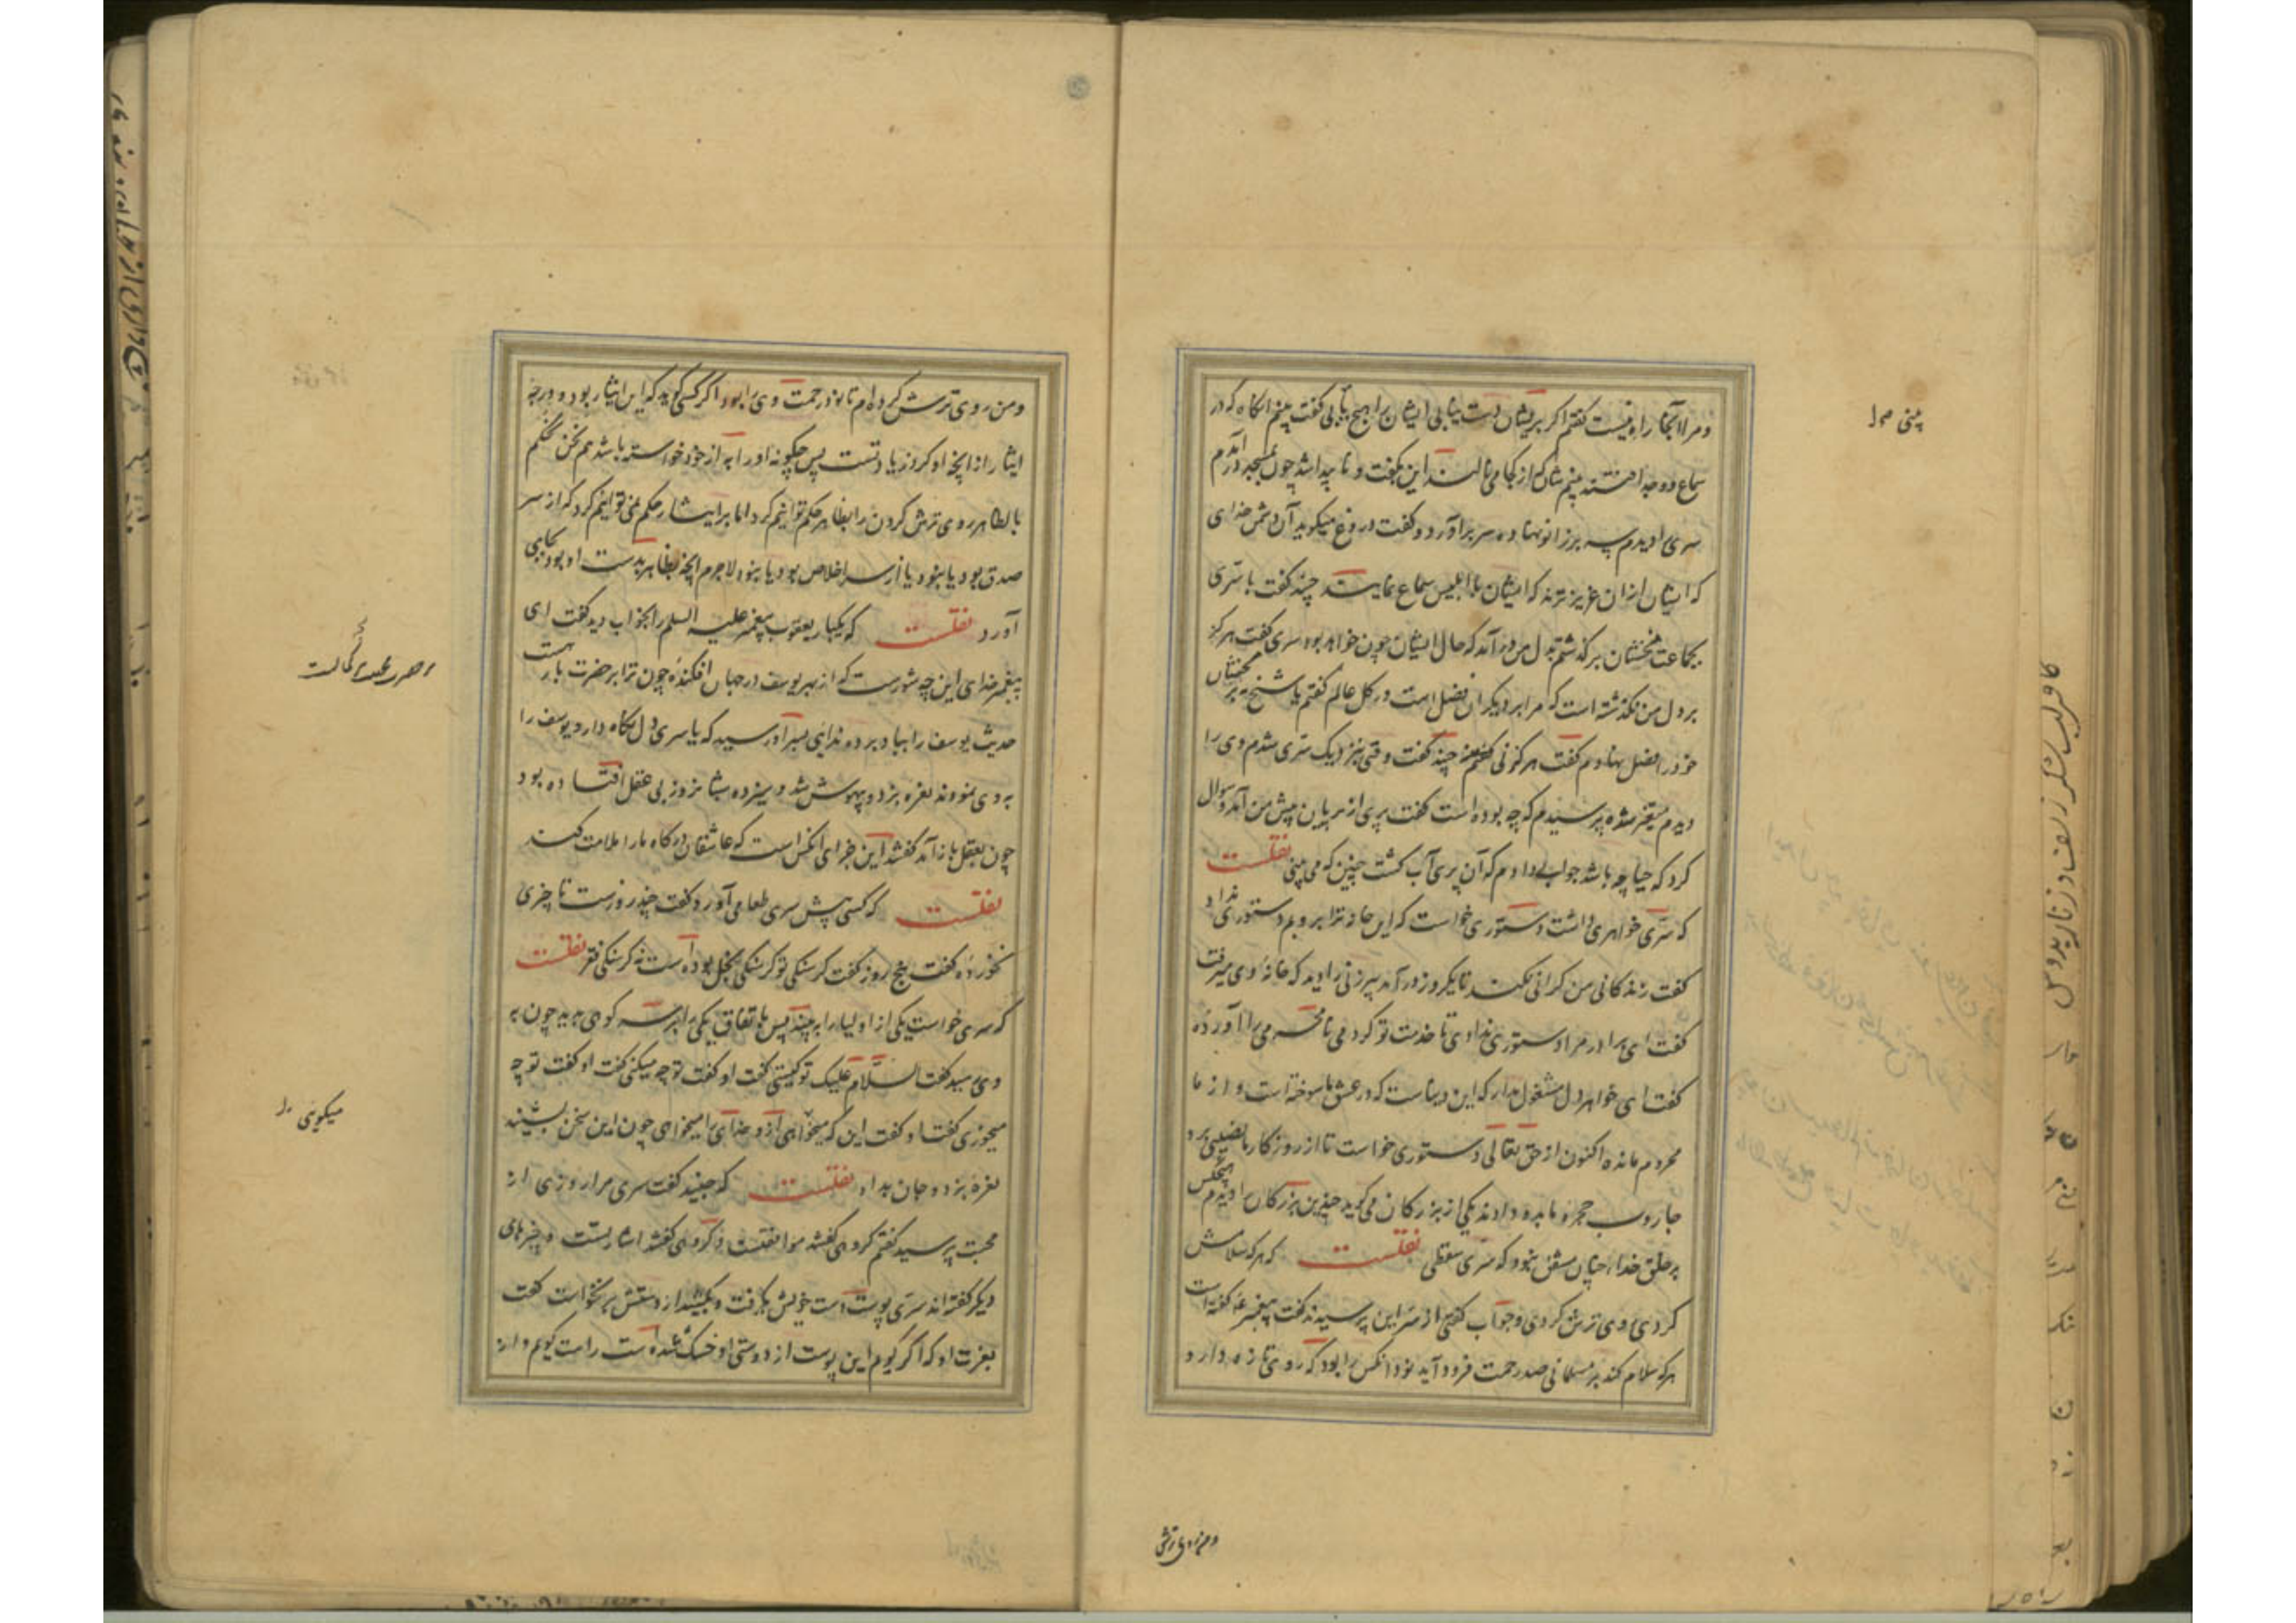 و مرا آنجا راه نیست کفتم اکر بریشان دست نیابی ایشان را هیچ یابی کفت بینم آنکاه که در
سماع و وجد افتند بینم شان که از کجا می نالند این بکفت و ناپیدا شد چون بمسجد درآمدم
سری را دیدم سر برزانو نهاده سر برآورد و کفت دروغ میکوید آن دشمن خدای
که ایشان از ان عزیزترند که ایشان را با ابلیس سماع نمایند جنید کفت با سری
بجماعت مخنثان برکذشتم بدل من درآمد که حال ایشان چون خواهد بود سری کفت هرکز
بر دل من نکذشته است که مرا بر دیکران فضل است در کل عالم کفتم یا شیخ نه بر مخنثان
خود را فضل نهادم کفت هرکز نی کفتم جنید کفت وقتی بنزدیک سری شدم وی را
دیدم متغیر شده پرسیدم که چه بوده است کفت پری از پریان پیش من آمد و سوال
کرد که حیا چه باشد جواب دادم که آن پری آب کشت چنین که می بینی نقلست
که سری خواهری داشت دستوری خواست که این خانه ترا بروبم دستوری نداد
کفت زندکانی من کرای این نکند تا یکروز درآمد پیرزنی را دید که خانه وی میرفت
کفت ای برادر مرا دستوری ندادی تا خدمت تو کردمی نامحرمی را آوردهٔ
کفت ای خواهر دل مشغول مدار که این دنیاست که در عشق ما سوخته است و از ما
محروم مانده اکنون از حق تعالی دستوری خواست تا از روزکار ما نصیبی برد
جاروب حجره ما بدو دادند یکی از بزرکان می کوید چندین بزرکان را دیدم هیچکس
بر خلق خدا چنان مشفق نبود که سری سقطی نقلست که هرکه سلامش
کردی روی ترش کردی و جواب کفتی از سر این پرسیدند کفت پیغمبر کفته است
هرکه سلام کند بر مسلمانی صد رحمت فرود آید نود آنکس را بود که روی تازه دارد
و من روی ترش
و من روی ترش کرده ام تا نود رحمت وی را بود اکر کسی کوید که این ایثار بود و درجه
ایثار از آنچه او کرد زیادتست پس چکونه او را به از خود خواسته باشد هم نحن نحکم
بالظاهر روی ترش کردن را بظاهر حکم توانیم کرد اما بر ایثار حکم نمی توانیم کرد که از سر
صدق بود یا نبود یا از سر اخلاص بود یا نبود لاجرم آنچه بظاهر بدست او بود بجای
آورد نقلست که یکبار یعقوب پیغمبر علیه السلم را بخواب دید کفت ای
پیغمبر خدای این چه شورست که از بهر یوسف در جهان افکندهٔ چون ترا بر حضرت بار هست
حدیث یوسف را بباد بر ده ندائی بسر او رسید که یا سری دل نکاه دار و یوسف را
بوی نمودند نعره بزد و بیهوش شد و سیزده شبانروز بی عقل افتاده بود
چون بعقل بازآمد کفتند این جزای آنکس است که عاشقان درکاه ما را ملامت کند
نقلست که کسی پیش سری طعامی آورد و کفت چند روزست تا چیزی
نخوردهٔ کفت پنج روز کفت کرسنکی تو کرسنکی بخل بوده است نه کرسنکی فقر نقلست
که سری خواست یکی از اولیا را به بیند پس باتفاق یکی را بر سر کوهی بدید چون بر
وی رسید کفت السلام علیک تو کیستی کفت او کفت تو چه میکنی کفت او کفت تو چه
میخوری کفت او کفت این که میخواهی از و خدای را میخواهی چون این سخن بشنید
نعره بزد و جان بداد نقلست که جنید کفت سری مرا روزی از
محبت پرسید کفتم کروهی کفتند موافقتست و کروهی کفتند اشارتست و چیزهای
دیکر کفته اند سری پوست دست خویش بکرفت و بکشید از دستش برنخواست کفت
بعزت او که اکر کویم این پوست از دوستی او خشک شده است راست کویم و از
میکوئی